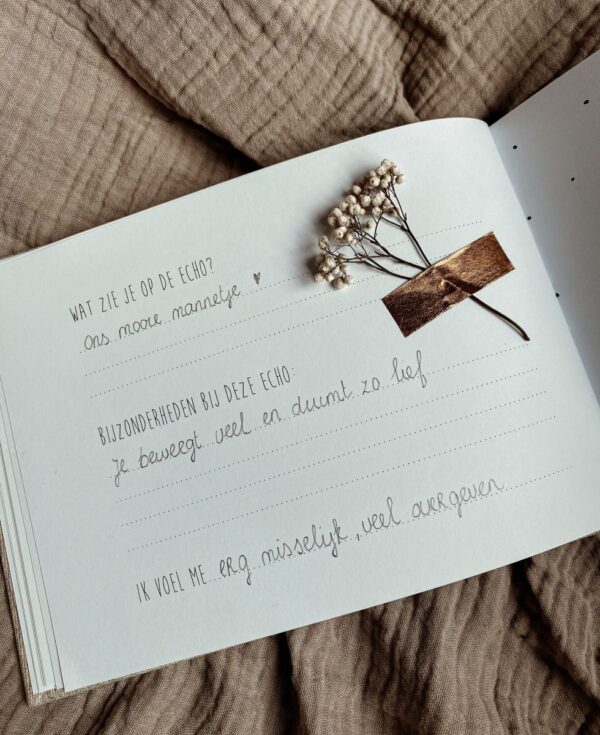 WAT ZIE JE OP DE ECHO?
Ons mooie mannetje ♥
BIJZONDERHEDEN BIJ DEZE ECHO:
Je beweegt veel en duimt zo lief
IK VOEL ME erg misselijk, veel overgeven